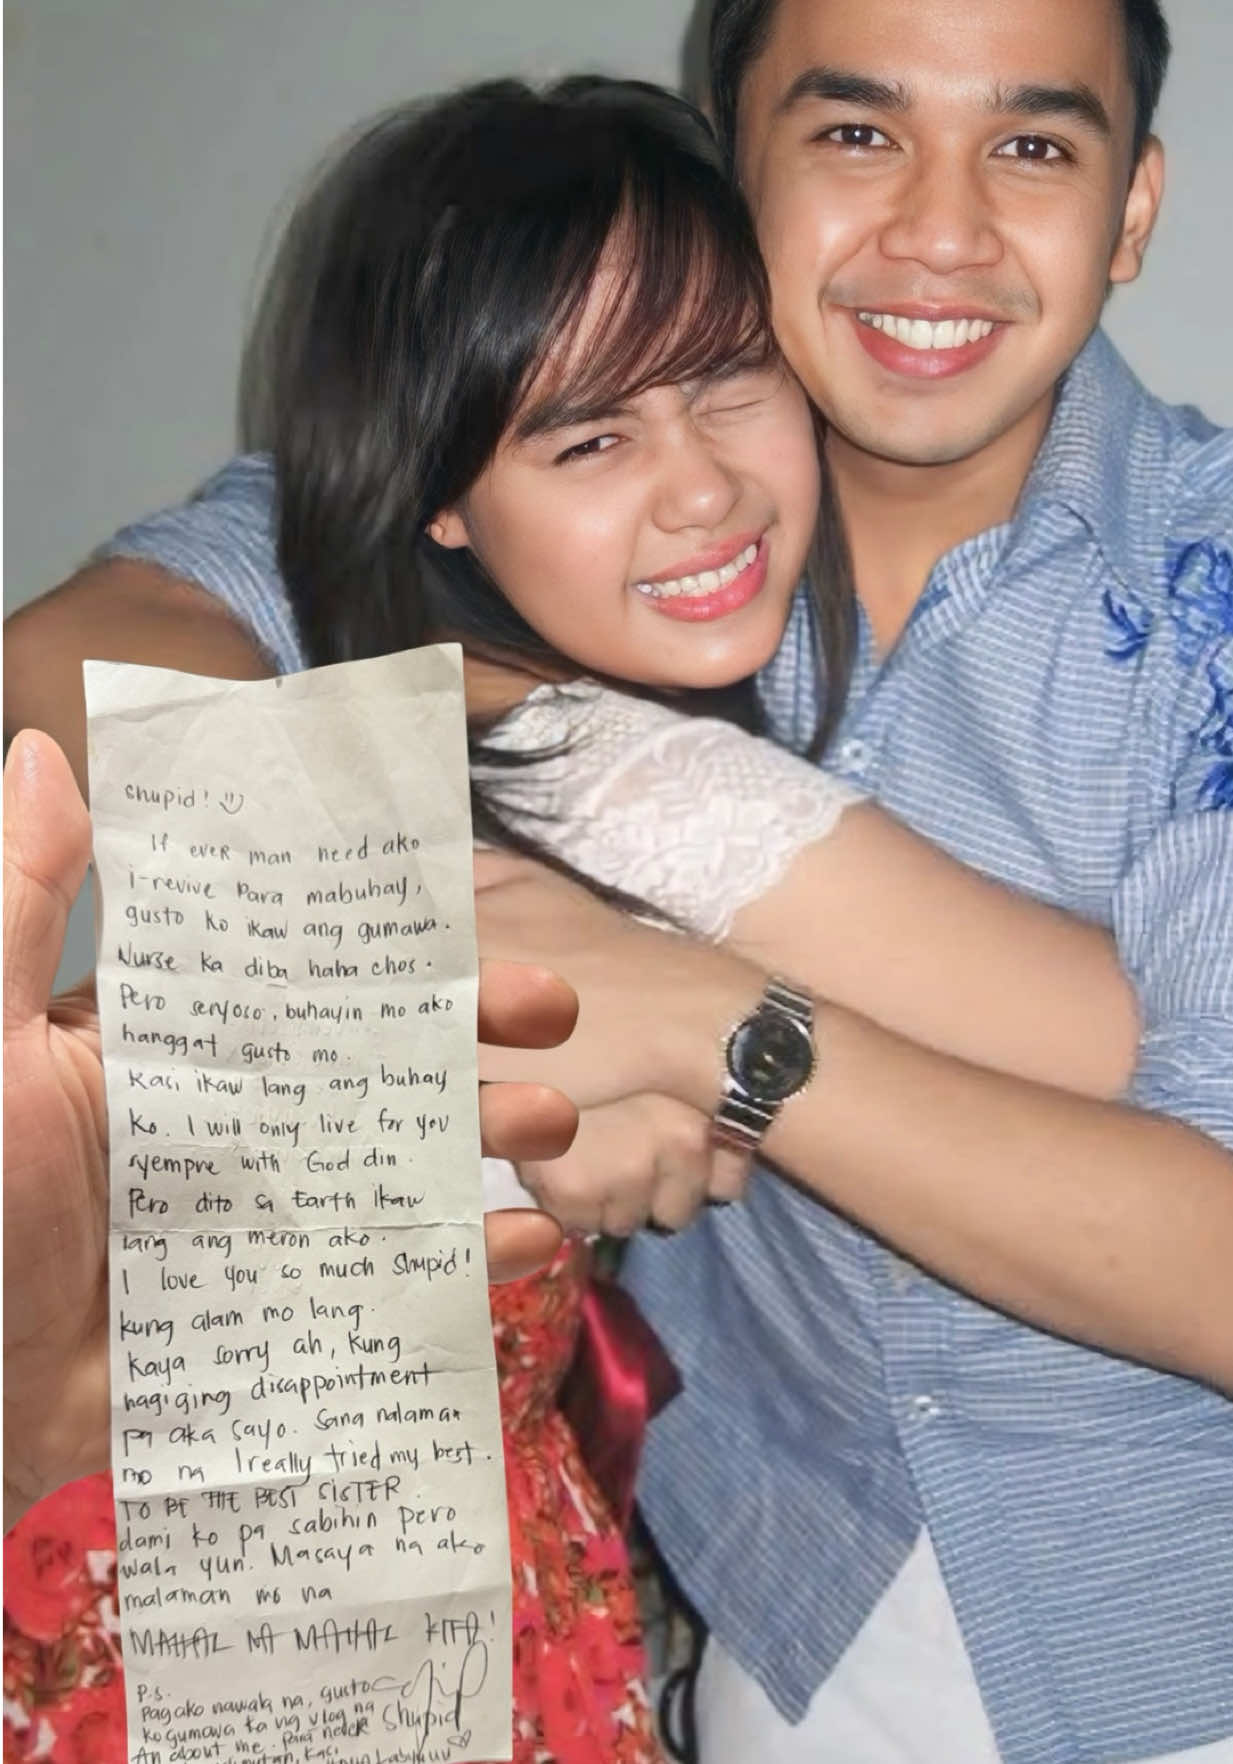 shupid!
If ever man need ako
i-revive para mabuhay,
gusto ko ikaw ang gumawa.
Nurse ka diba haha chos.
Pero seryoso, buhayin mo ako
hanggat gusto mo.
Kasi ikaw lang ang buhay
ko. I will only live for you
syempre with God din.
Pero dito sa Earth ikaw
lang ang meron ako.
I love you so much Shupid!
kung alam mo lang.
kaya sorry ah, kung
nagiging disappointment
pa ako sayo. Sana malaman
mo na I really tried my best.
TO BE THE BEST SISTER.
dami ko pa sabihin pero
wala yun. Masaya na ako
malaman mo na
MAHAL NA MAHAL KITA!
P.S.
Pag ako nawala na, gusto
ko gumawa ka ng vlog na
An about me. para
Shupid
kasi